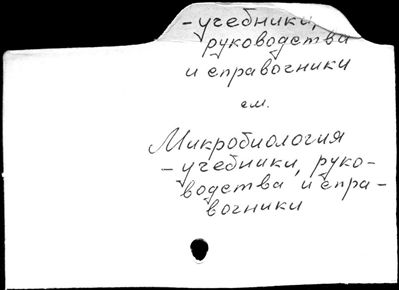 - учебники,
руководства
и справочники
см.
Микробиология
- учебники, руко-
водства и спра-
вочники